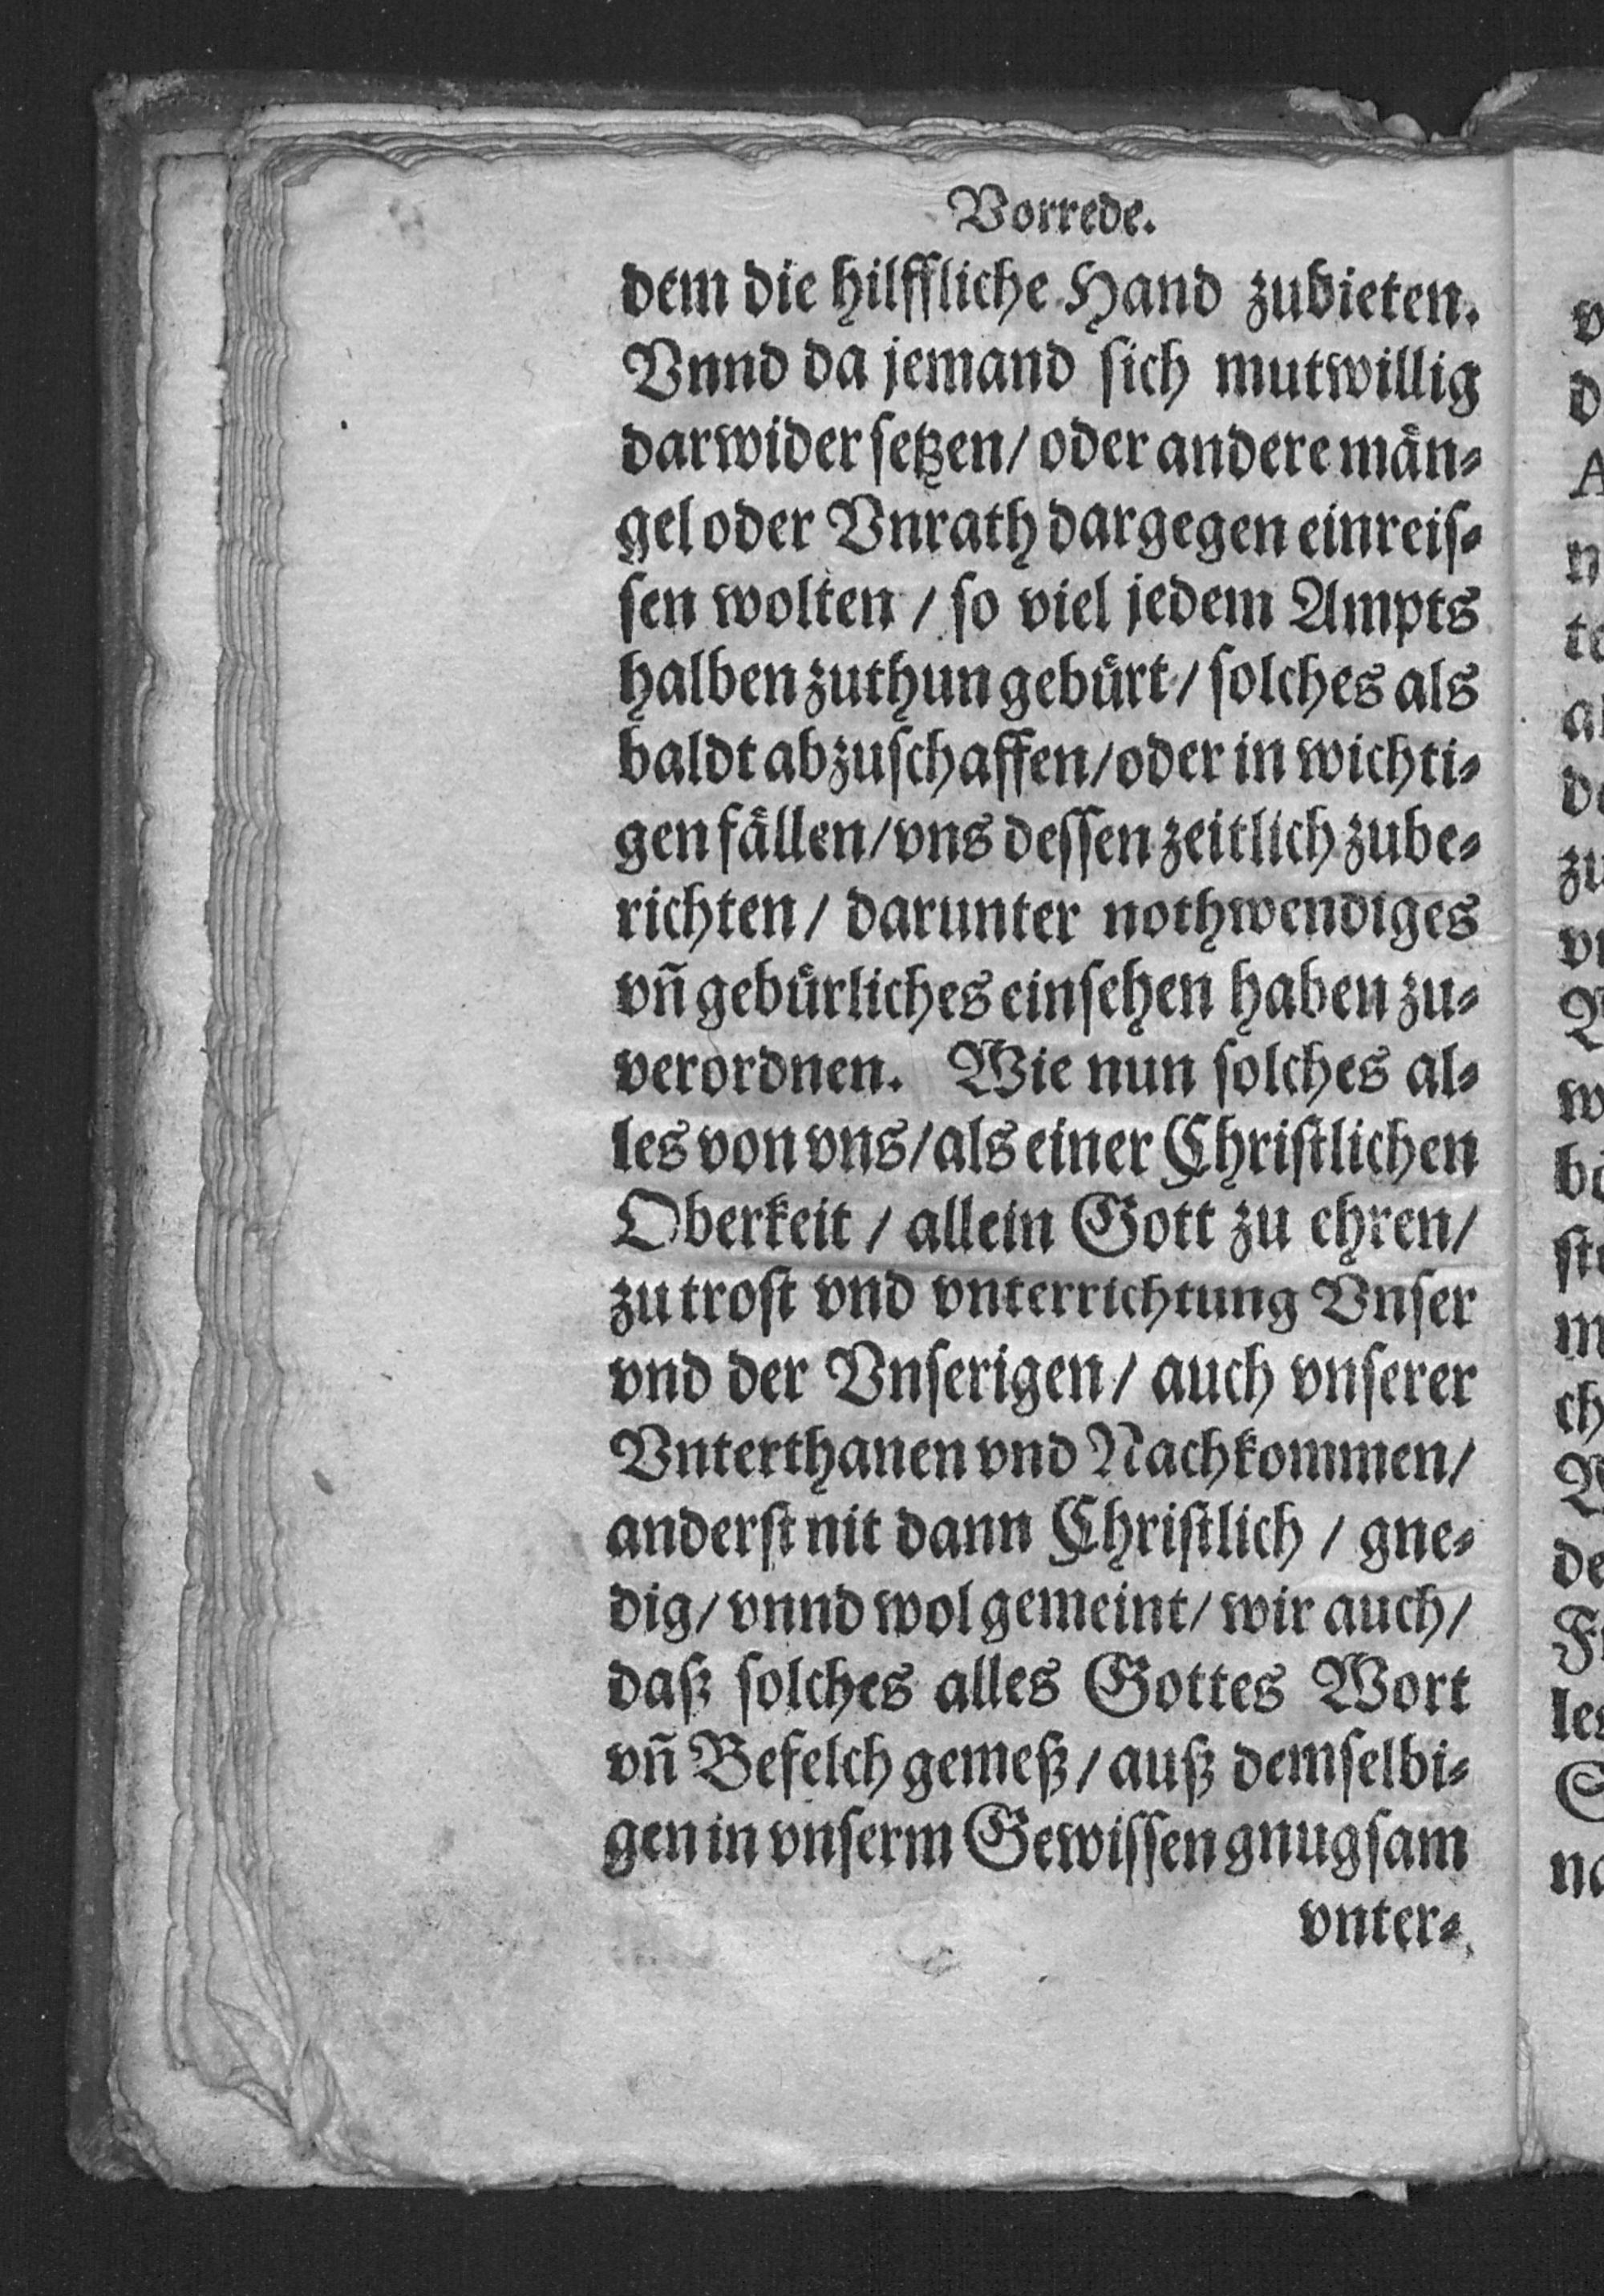 Vorrede.
dem die hilffliche Hand zubieten.
Vnnd da jemand sich mutwillig
darwider setzen/ oder andere män-
gel oder Vnrath dargegen einreis-
sen wolten / so viel jedem Ampts
halben zuthun gebürt / solches als
baldt abzuschaffen/oder in wichti-
gen fällen/vns dessen zeitlich zube-
richten/ darunter nothwendiges
vñ gebürliches einsehen haben zu-
verordnen. Wie nun solches al-
les von vns/als einer Christlichen
Oberkeit / allein Gott zu ehren/
zu trost vnd vnterrichtung Vnser
vnd der Vnserigen / auch vnserer
Vnterthanen vnd Nachkommen/
anderst nit dann Christlich / gne-
dig/ vnnd wol gemeint/ wir auch/
daß solches alles Gottes Wort
vñ Befelch gemeß / auß demselbi-
gen in vnserm Gewissen gnugsam
vnter-